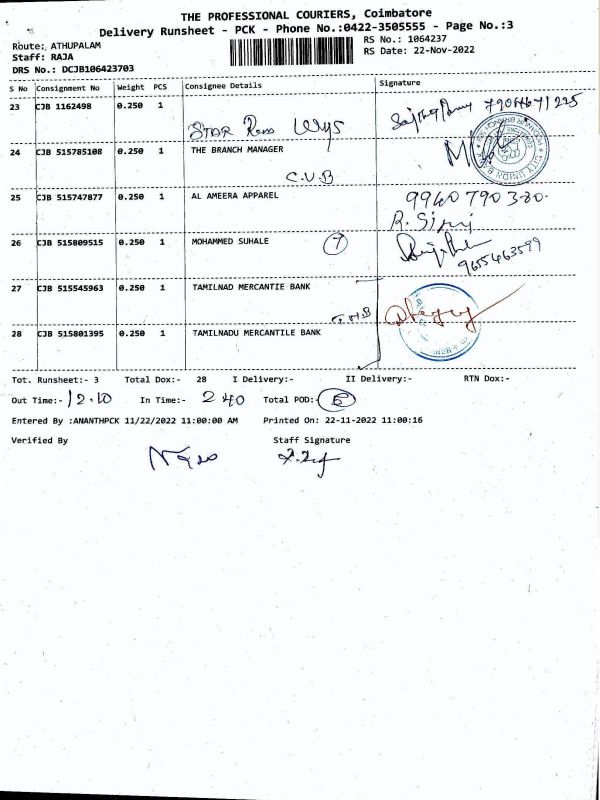 THE PROFESSIONAL COURIERS, Coimbatore
Delivery Runsheet - PCK - Phone No.:0422-3505555 - Page No.:3
Route: ATHUPALAM RS No.: 1064237
Staff: RAJA RS Date: 22-Nov-2022
DRS No.: DCJB106423703
S No Consignment No Weight PCS Consignee Details Signature
23 CJB 1162498 0.250 1
STAR
24 CJB 515785108 0.250 1 THE BRANCH MANAGER
C.U.B
CITY UNION BANK
25 CJB 515747877 0.250 1 AL AMEERA APPAREL 9940790380.
26 CJB 515809515 0.250 1 MOHAMMED SUHALE 7
9655463599
27 CJB 515545963 0.250 1 TAMILNAD MERCANTIE BANK
28 CJB 515801395 0.250 1 TAMILNADU MERCANTILE BANK
Tot. Runsheet:- 3 Total Dox:- 28 I Delivery:- II Delivery:- RTN Dox:-
Out Time:- 12.10 In Time:- 2 40 Total POD:-
Entered By :ANANTHPCK 11/22/2022 11:00:00 AM Printed On: 22-11-2022 11:00:16
Verified By Staff Signature